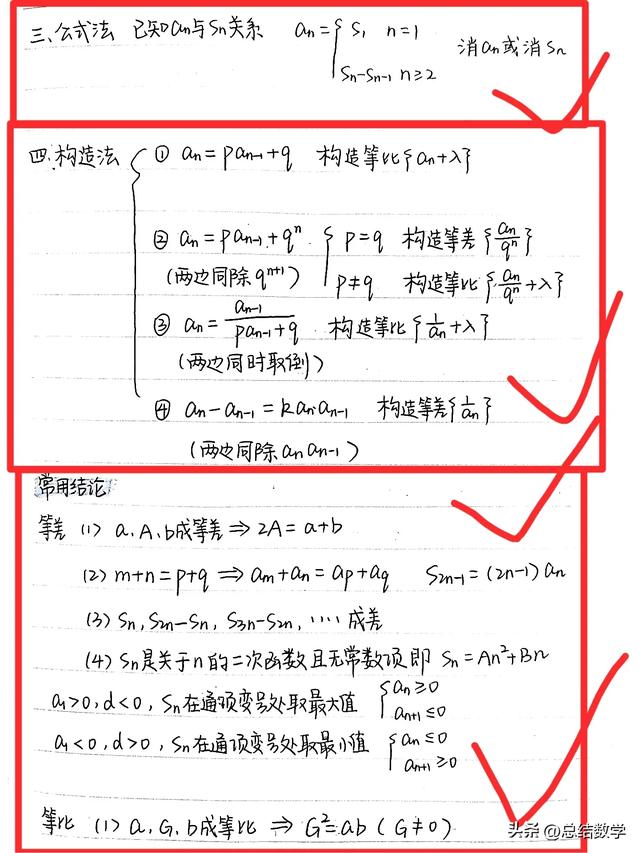 三、公式法 已知an与Sn关系 an={S1 n=1 消an或消Sn
Sn-Sn-1 n≥2
四、构造法 ① an=pan-1+q 构造等比{an+λ}
② an=pan-1+qⁿ {p=q 构造等差{an/qⁿ}
(两边同除qⁿ⁺¹) p≠q 构造等比{an/qⁿ+λ}
③ an=an-1/(pan-1+q) 构造等比{1/an+λ}
(两边同时取倒)
④ an-an-1=kan·an-1 构造等差{1/an}
(两边同除an an-1)
常用结论
等差 (1) a、A、b成等差⇒2A=a+b
(2) m+n=p+q ⇒ am+an=ap+aq S2n-1=(2n-1)an
(3) Sn,S2n-Sn,S3n-S2n,····成差
(4) Sn是关于n的二次函数且无常数项即 Sn=An²+Bn
a1>0,d<0,Sn在通项变号处取最大值 {an≥0
an+1≤0
a1<0,d>0,Sn在通项变号处取最小值 {an≤0
an+1≥0
等比 (1) a,G,b成等比 ⇒ G²=ab (G≠0)
头条@总结数学